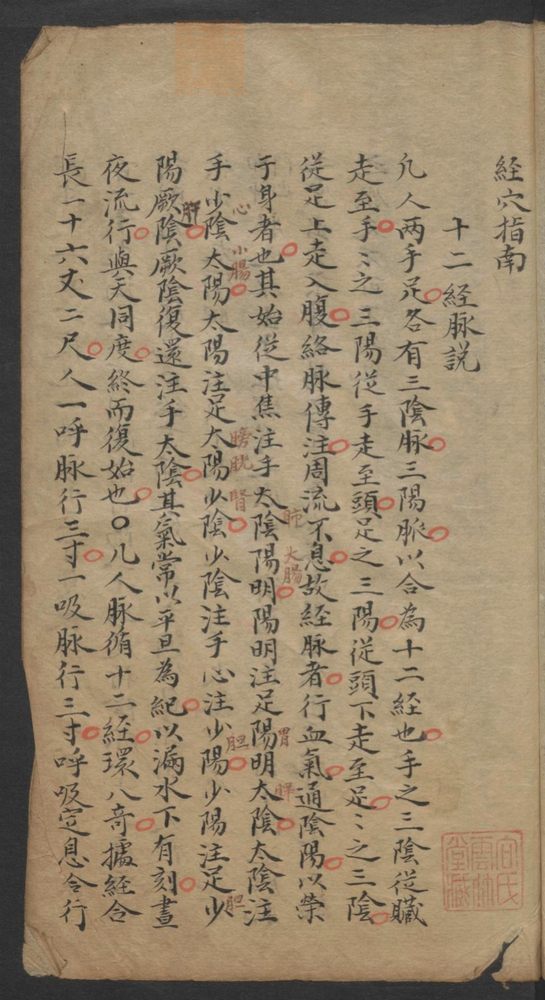 經穴指南
十二經脉説
凡人兩手足各有三陰脉三陽脉以合為十二經也手之三陰從臟
走至手〻之三陽從手走至頭足之三陽從頭下走至足〻之三陰
從足上走入腹絡脉傳注周流不息故經脉者行血氣通陰陽以榮
肺 大腸 胃 脾
于身者也其始從中焦注手太陰陽明陽明注足陽明太陰太陰注
心 小腸 膀胱 腎 胆 胆
手少陰太陽太陽注足太陽少陰少陰注手心注少陽少陽注足少
肝
陽厥陰厥陰復還注手太陰其氣常以平旦為紀以漏水下有刻晝
夜流行與天同度終而復始也〇凡人脉循十二經環八奇據經合
長一十六丈二尺人一呼脉行三寸一吸脉行三寸呼吸定息合行